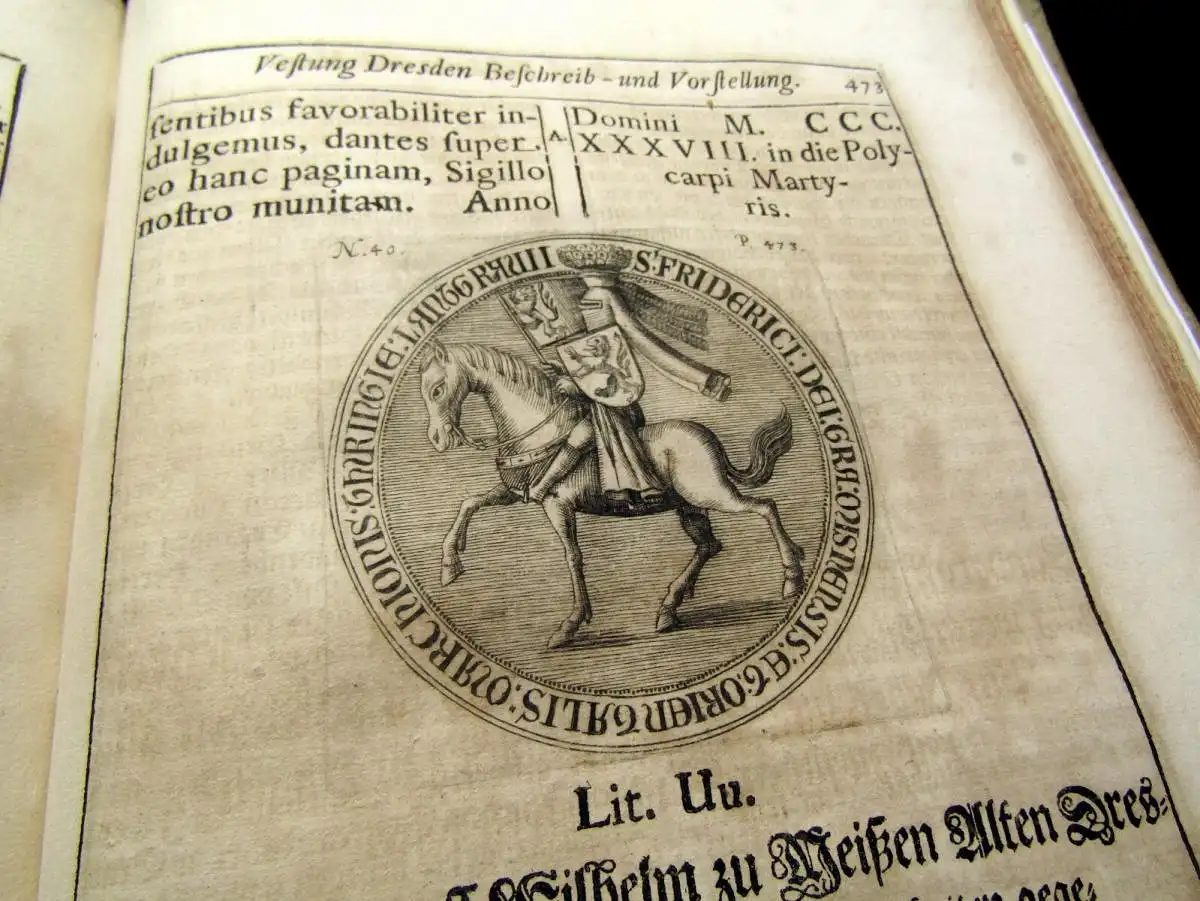 Vestung Dresden Beschreib - und Vorstellung. 473
ſentibus favorabiliter in-
dulgemus, dantes ſuper.
eo hanc paginam, Sigillo
noſtro munitam. Anno
A.
Domini M. CCC.
XXXVIII. in die Poly-
carpi Marty-
ris.
N. 40.
P. 473.
S. FRIDERICI: DEI: GRA: MISNENSIS: ET: ORIENTALIS: MARCHIONIS: THURINGIE: LANTGRAVII
Lit. Uu.
Wilhelm zu Meißen Alten Dres-
gege-